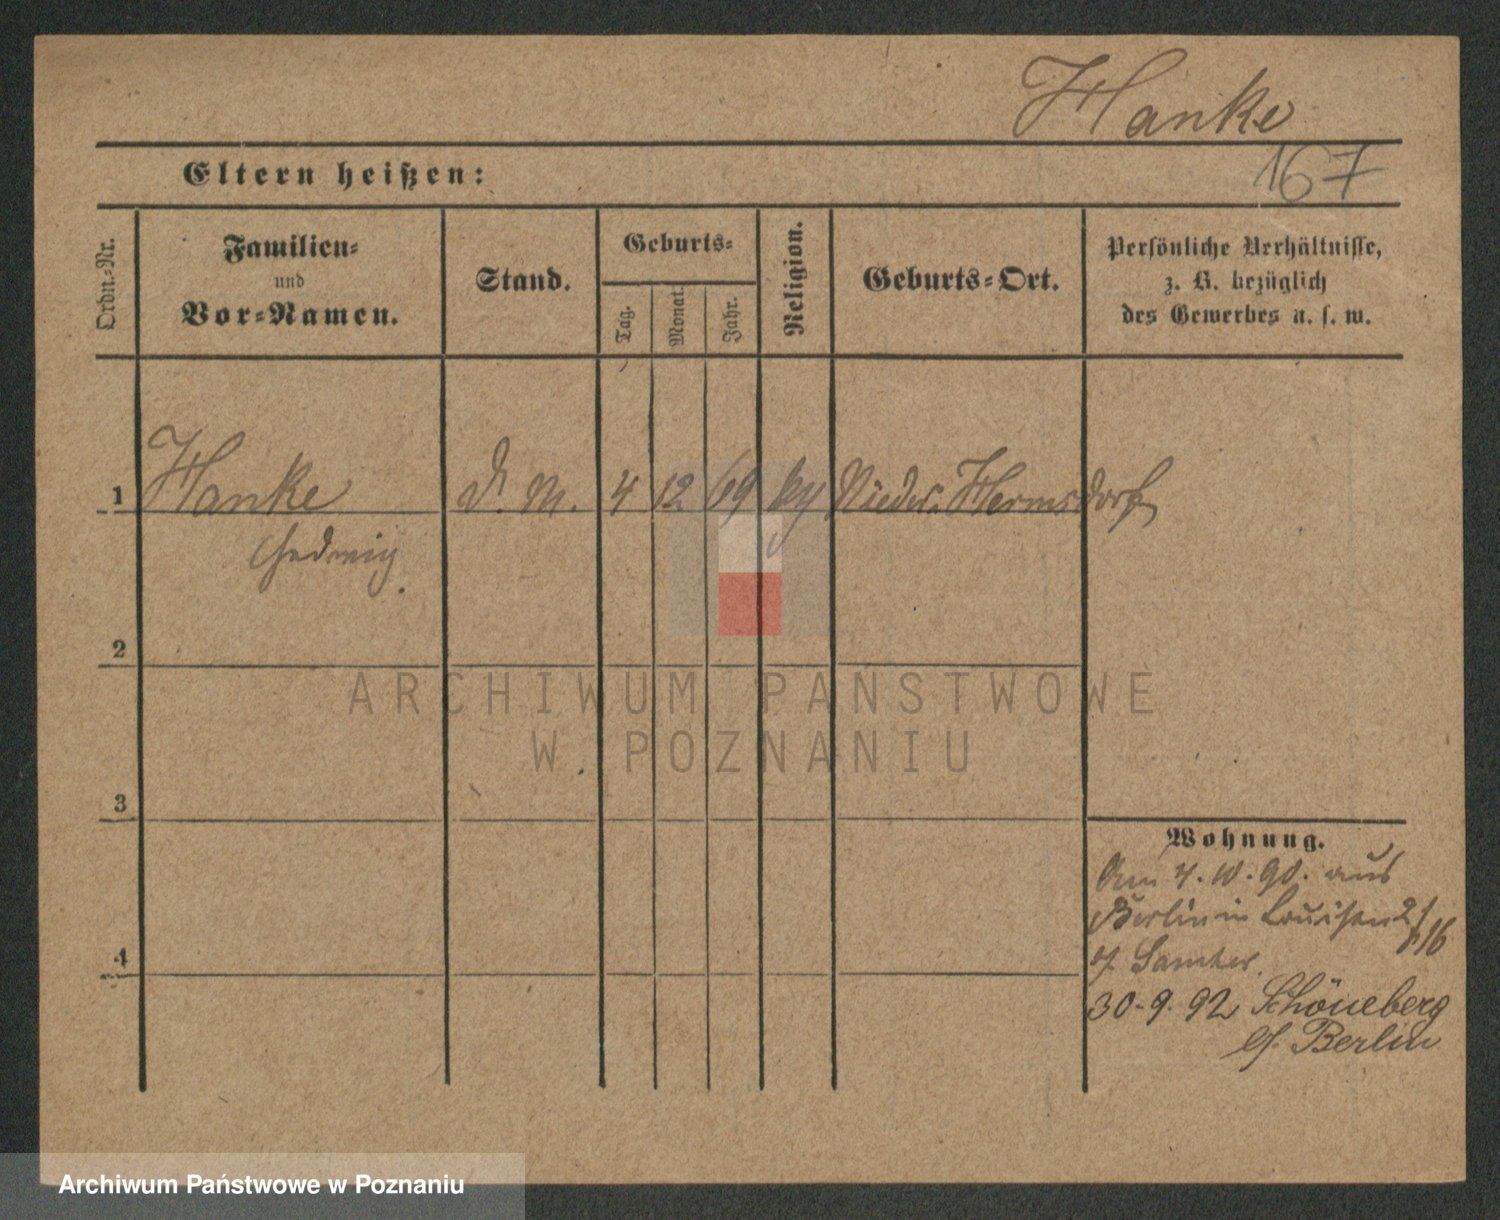 Hanke
167
Eltern heißen:
Ordn.-Nr.
Familien-
und
Vor-Namen.
Stand.
Geburts-
Tag.
Monat.
Jahr.
Religion.
Geburts-Ort.
Persönliche Verhältnisse,
z. B. bezüglich
des Gewerbes u. s. w.
1 Hanke d. M. 4 12 69 Nieder Hermsdorf
Hedwig
2
3
4
ARCHIWUM PAŃSTWOWE
W POZNANIU
Wohnung.
Am 4.10.90. aus
Berlin in Louisen 2/
b/ Samter. 16
30.9.92 Schöneberg
b/. Berlin
Archiwum Państwowe w Poznaniu